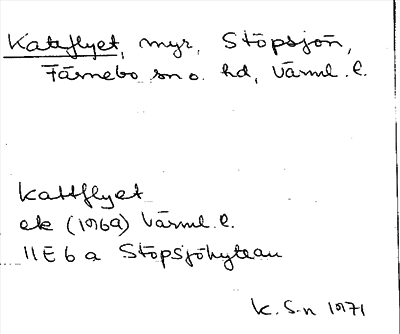 Kattflyet, myr, Stöpsjön,
Färnebo sn o. hd, Värml. l.
Kattflyet
ek (1969) Värml. l.
11E 6a Stöpsjöhyttan
K. S-n 1971